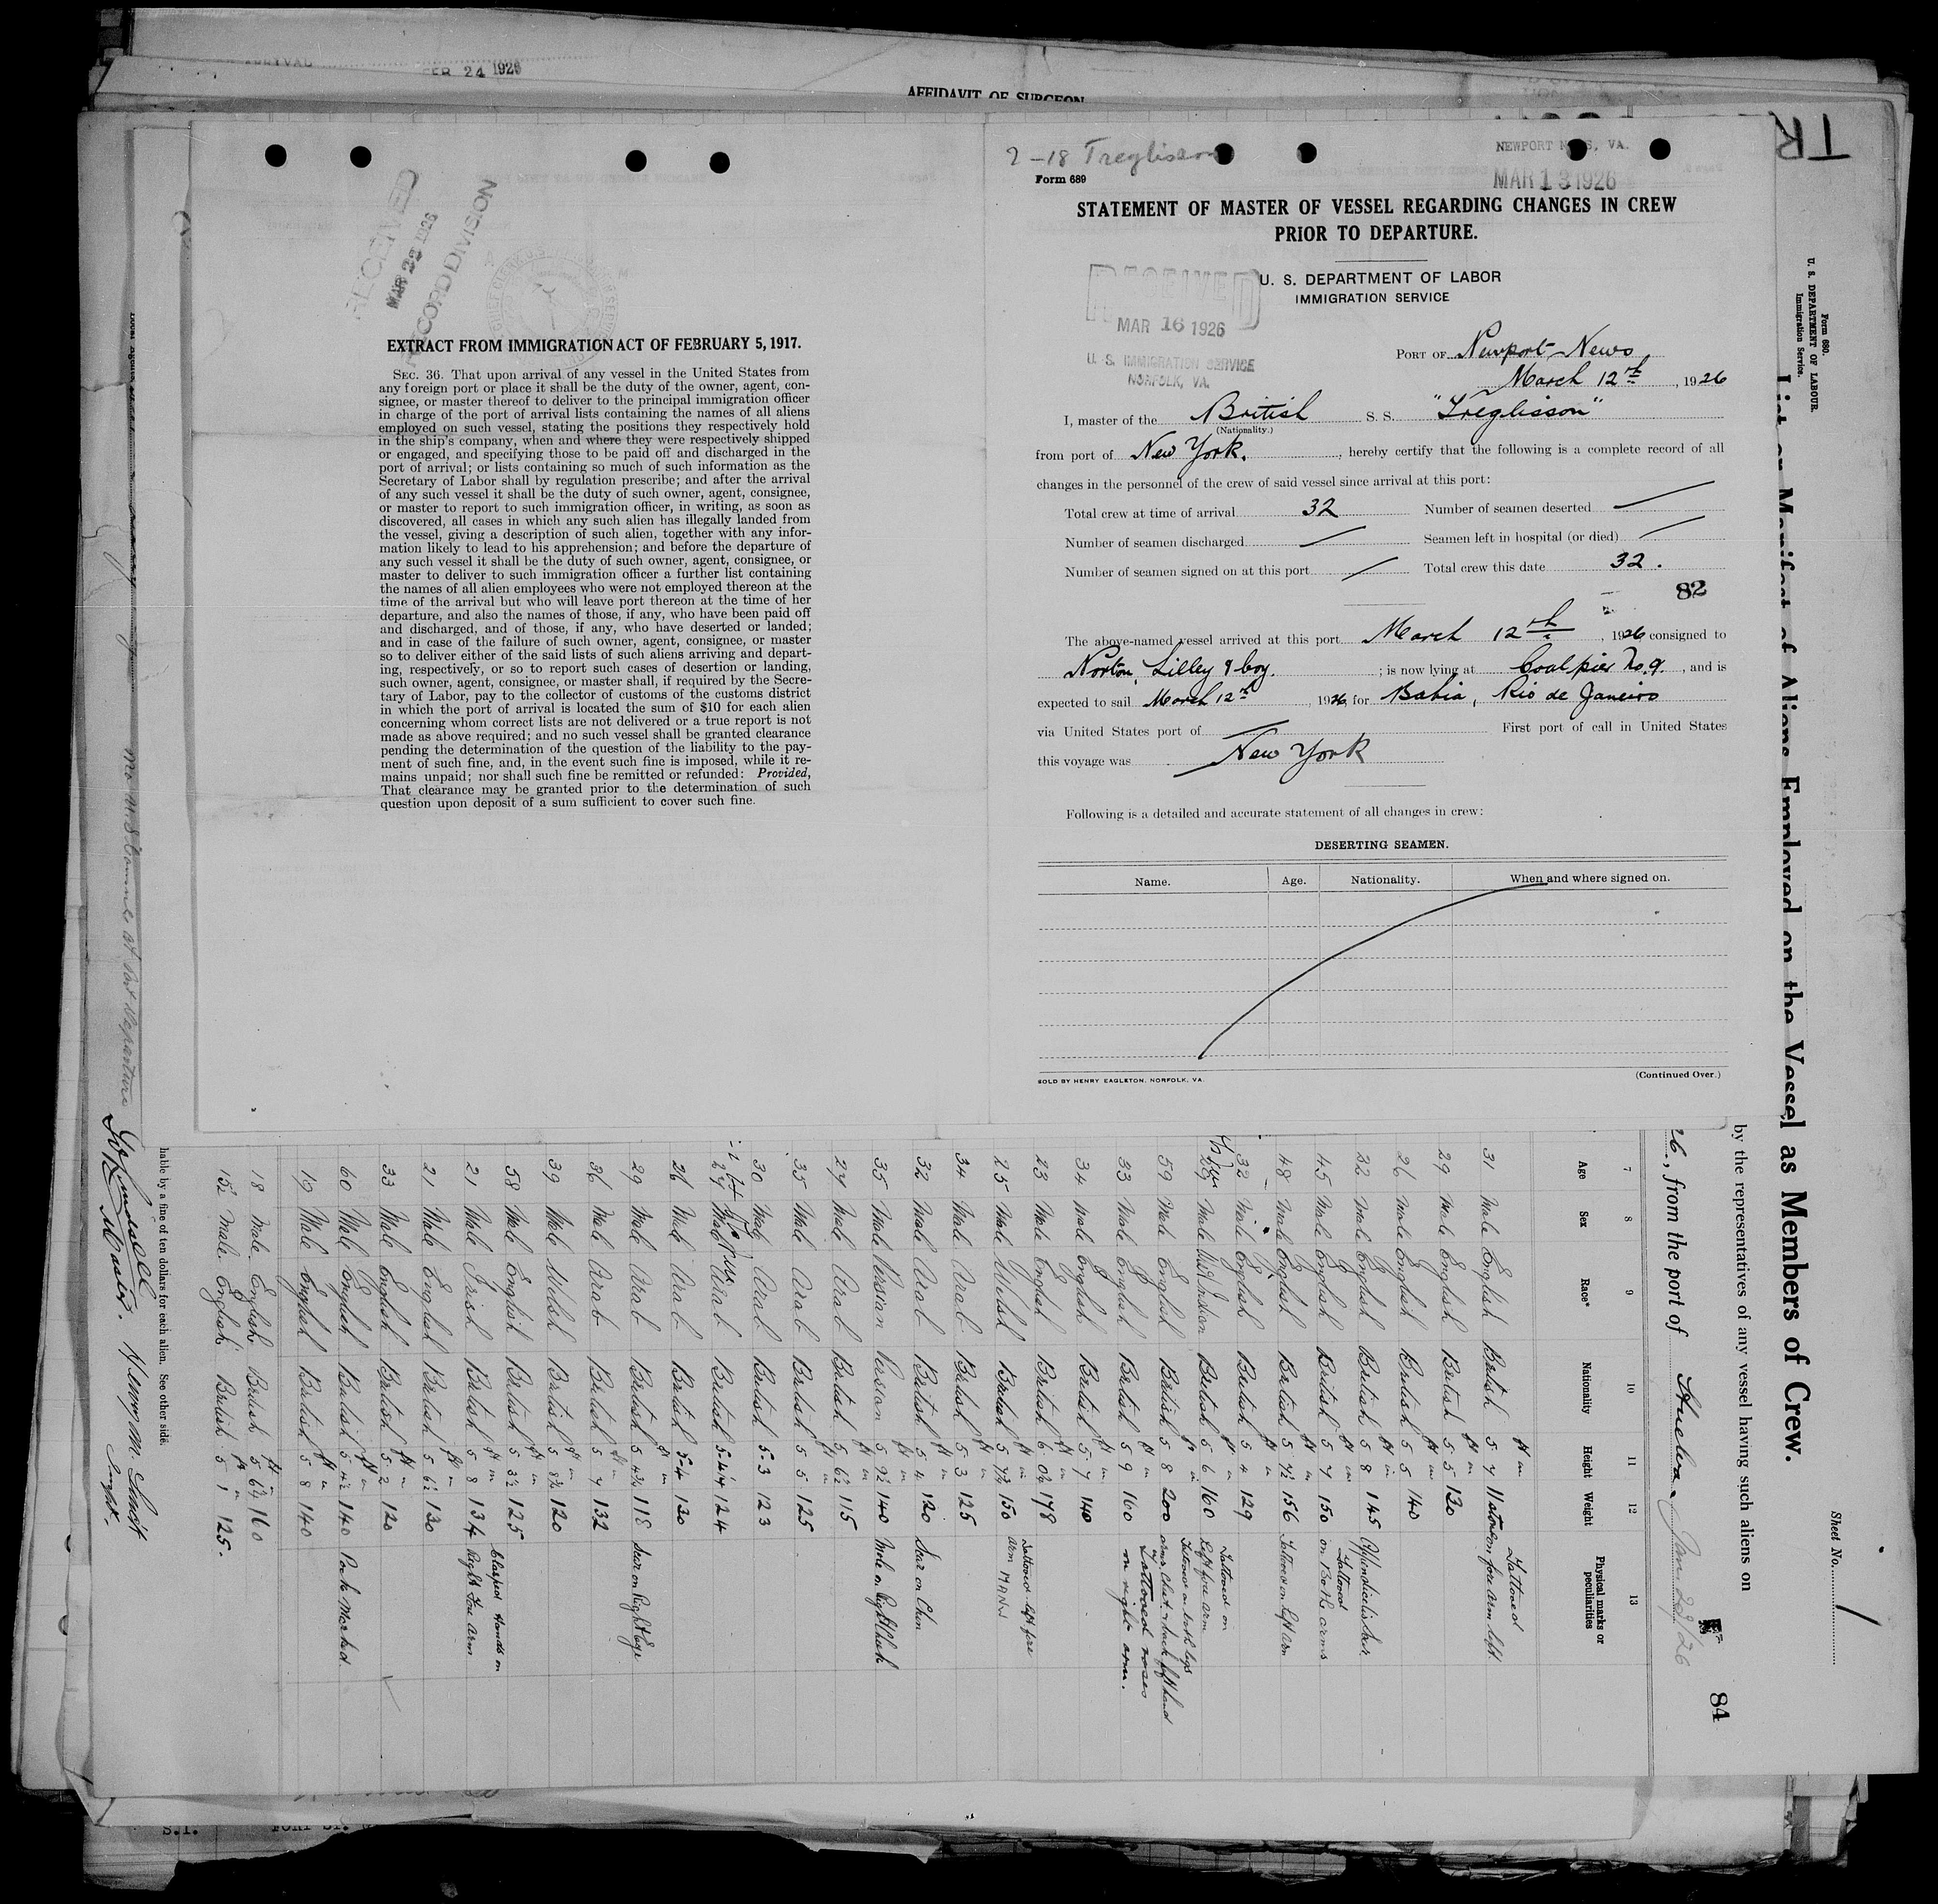 ARRIVAL FEB 24 1926
AFFIDAVIT OF SURGEON
RECEIVED
MAR 22 1926
RECORD DIVISION
EXTRACT FROM IMMIGRATION ACT OF FEBRUARY 5, 1917.
SEC. 36. That upon arrival of any vessel in the United States from
any foreign port or place it shall be the duty of the owner, agent, con-
signee, or master thereof to deliver to the principal immigration officer
in charge of the port of arrival lists containing the names of all aliens
employed on such vessel, stating the positions they respectively hold
in the ship's company, when and where they were respectively shipped
or engaged, and specifying those to be paid off and discharged in the
port of arrival; or lists containing so much of such information as the
Secretary of Labor shall by regulation prescribe; and after the arrival
of any such vessel it shall be the duty of such owner, agent, consignee,
or master to report to such immigration officer, in writing, as soon as
discovered, all cases in which any such alien has illegally landed from
the vessel, giving a description of such alien, together with any infor-
mation likely to lead to his apprehension; and before the departure of
any such vessel it shall be the duty of such owner, agent, consignee, or
master to deliver to such immigration officer a further list containing
the names of all alien employees who were not employed thereon at the
time of the arrival but who will leave port thereon at the time of her
departure, and also the names of those, if any, who have been paid off
and discharged, and of those, if any, who have deserted or landed;
and in case of the failure of such owner, agent, consignee, or master
so to deliver either of the said lists of such aliens arriving and depart-
ing, respectively, or so to report such cases of desertion or landing,
such owner, agent, consignee, or master shall, if required by the Secre-
tary of Labor, pay to the collector of customs of the customs district
in which the port of arrival is located the sum of $10 for each alien
concerning whom correct lists are not delivered or a true report is not
made as above required; and no such vessel shall be granted clearance
pending the determination of the question of the liability to the pay-
ment of such fine, and, in the event such fine is imposed, while it re-
mains unpaid; nor shall such fine be remitted or refunded: Provided,
That clearance may be granted prior to the determination of such
question upon deposit of a sum sufficient to cover such fine.
2-18 Treglisson
Form 689
NEWPORT NEWS, VA.
MAR 13 1926
STATEMENT OF MASTER OF VESSEL REGARDING CHANGES IN CREW
PRIOR TO DEPARTURE.
U. S. DEPARTMENT OF LABOR
IMMIGRATION SERVICE
RECEIVED
MAR 16 1926
U. S. IMMIGRATION SERVICE
NORFOLK, VA.
PORT OF Newport News
March 12th, 1926
I, master of the British S. S. "Treglisson"
(Nationality.)
from port of New York., hereby certify that the following is a complete record of all
changes in the personnel of the crew of said vessel since arrival at this port:
Total crew at time of arrival 32 Number of seamen deserted /
Number of seamen discharged / Seamen left in hospital (or died) /
Number of seamen signed on at this port / Total crew this date 32.
82
The above-named vessel arrived at this port March 12th, 1926 consigned to
Norton, Lilley & Coy. ; is now lying at Coal pier No. 9, and is
expected to sail March 12th, 1926, for Bahia, Rio de Janeiro
via United States port of First port of call in United States
this voyage was New York
Following is a detailed and accurate statement of all changes in crew:
DESERTING SEAMEN.
Name. Age. Nationality. When and where signed on.
SOLD BY HENRY EAGLETON, NORFOLK, VA.
(Continued Over.)
TR
Form 680.
U. S. DEPARTMENT OF LABOUR.
Immigration Service.
Sheet No. 1
List or Manifest of Aliens Employed on the Vessel as Members of Crew.
by the representatives of any vessel having such aliens on
84
26, from the port of Huelva. Jan. 29/26
7 8 9 10 11 12 13
Age Sex Race* Nationality Height Weight Physical marks or peculiarities
31 Male English British 5 7 11 stone Tattooed on fore arm left.
29 Male English British 5 5 130
26 Male English British 5 5 140
22 Male English British 5 8 145 Appendicitis scar.
45 Male English British 5 7 150 Tattooed on Both arms
48 Male English British 5 7½ 156 Tattooed on left arm
32 Male English British 5 4 129
29 Male W. Indian British 5 6 160 Tattooed on left fore arm
59 Male English British 5 8 200 Tattooed on both legs arms chest & back of left hand
33 Male English British 5 9 160 Tattooed roses on right arm.
34 Male English British 5 7 140
23 Male English British 6 0½ 178
25 Male Welsh British 5 7½ 150 Tattooed left fore arm
34 Male Arab British 5 3 125
32 Male Arab British 5 4 120 Scar on Chin
35 Male Persian Persian 5 9½ 140 Mole on Right Cheek
27 Male Arab British 5 6½ 115
35 Male Arab British 5 5 125
30 Male Arab British 5-3 123
27 Male Arab British 5-4¼ 124
26 Male Arab British 5-4 130
29 Male Arab British 5 4¾ 118 Scar on Right Eye
36 Male Arab British 5 7 132
39 Male Welsh British 5 8½ 120
58 Male English British 5 3½ 125
21 Male Irish British 5 8 134 Clasped Hands on Right Fore Arm
21 Male English British 5 6½ 130
33 Male English British 5 2 120
60 Male English British 5 4½ 140 Pock Marked.
19 Male English British 5 8 140
18 Male English British 5 6½ 160
15½ Male English British 5 1 125.
liable by a fine of ten dollars for each alien. See other side.
Master.